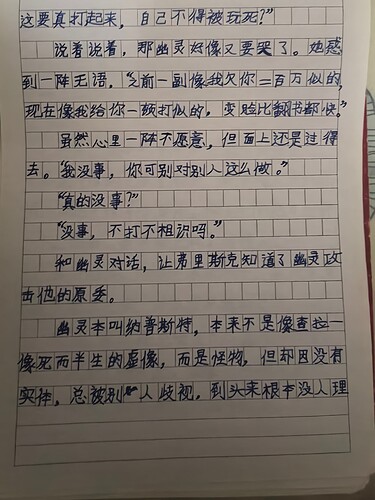 这要真打起来，自己不得被玩死？”
说着说着，那幽灵好像又要哭了。她感
到一阵无语，“之前一副像我欠你二百万似的，
现在像我给你一顿打似的，变脸比翻书都快。”
虽然心里一阵不愿意，但面上还是过得
去。“我没事，你可别对别人这么做。”
“真的没事？”
“没事，不打不相识吗。”
和幽灵对话，让弗里斯克知道了幽灵攻
击他的原委。
幽灵本叫纳普斯特，本来不是像查拉一
像死而半生的虚像，而是怪物，但却因没有
实体，总被别人歧视，到头来根本没人理